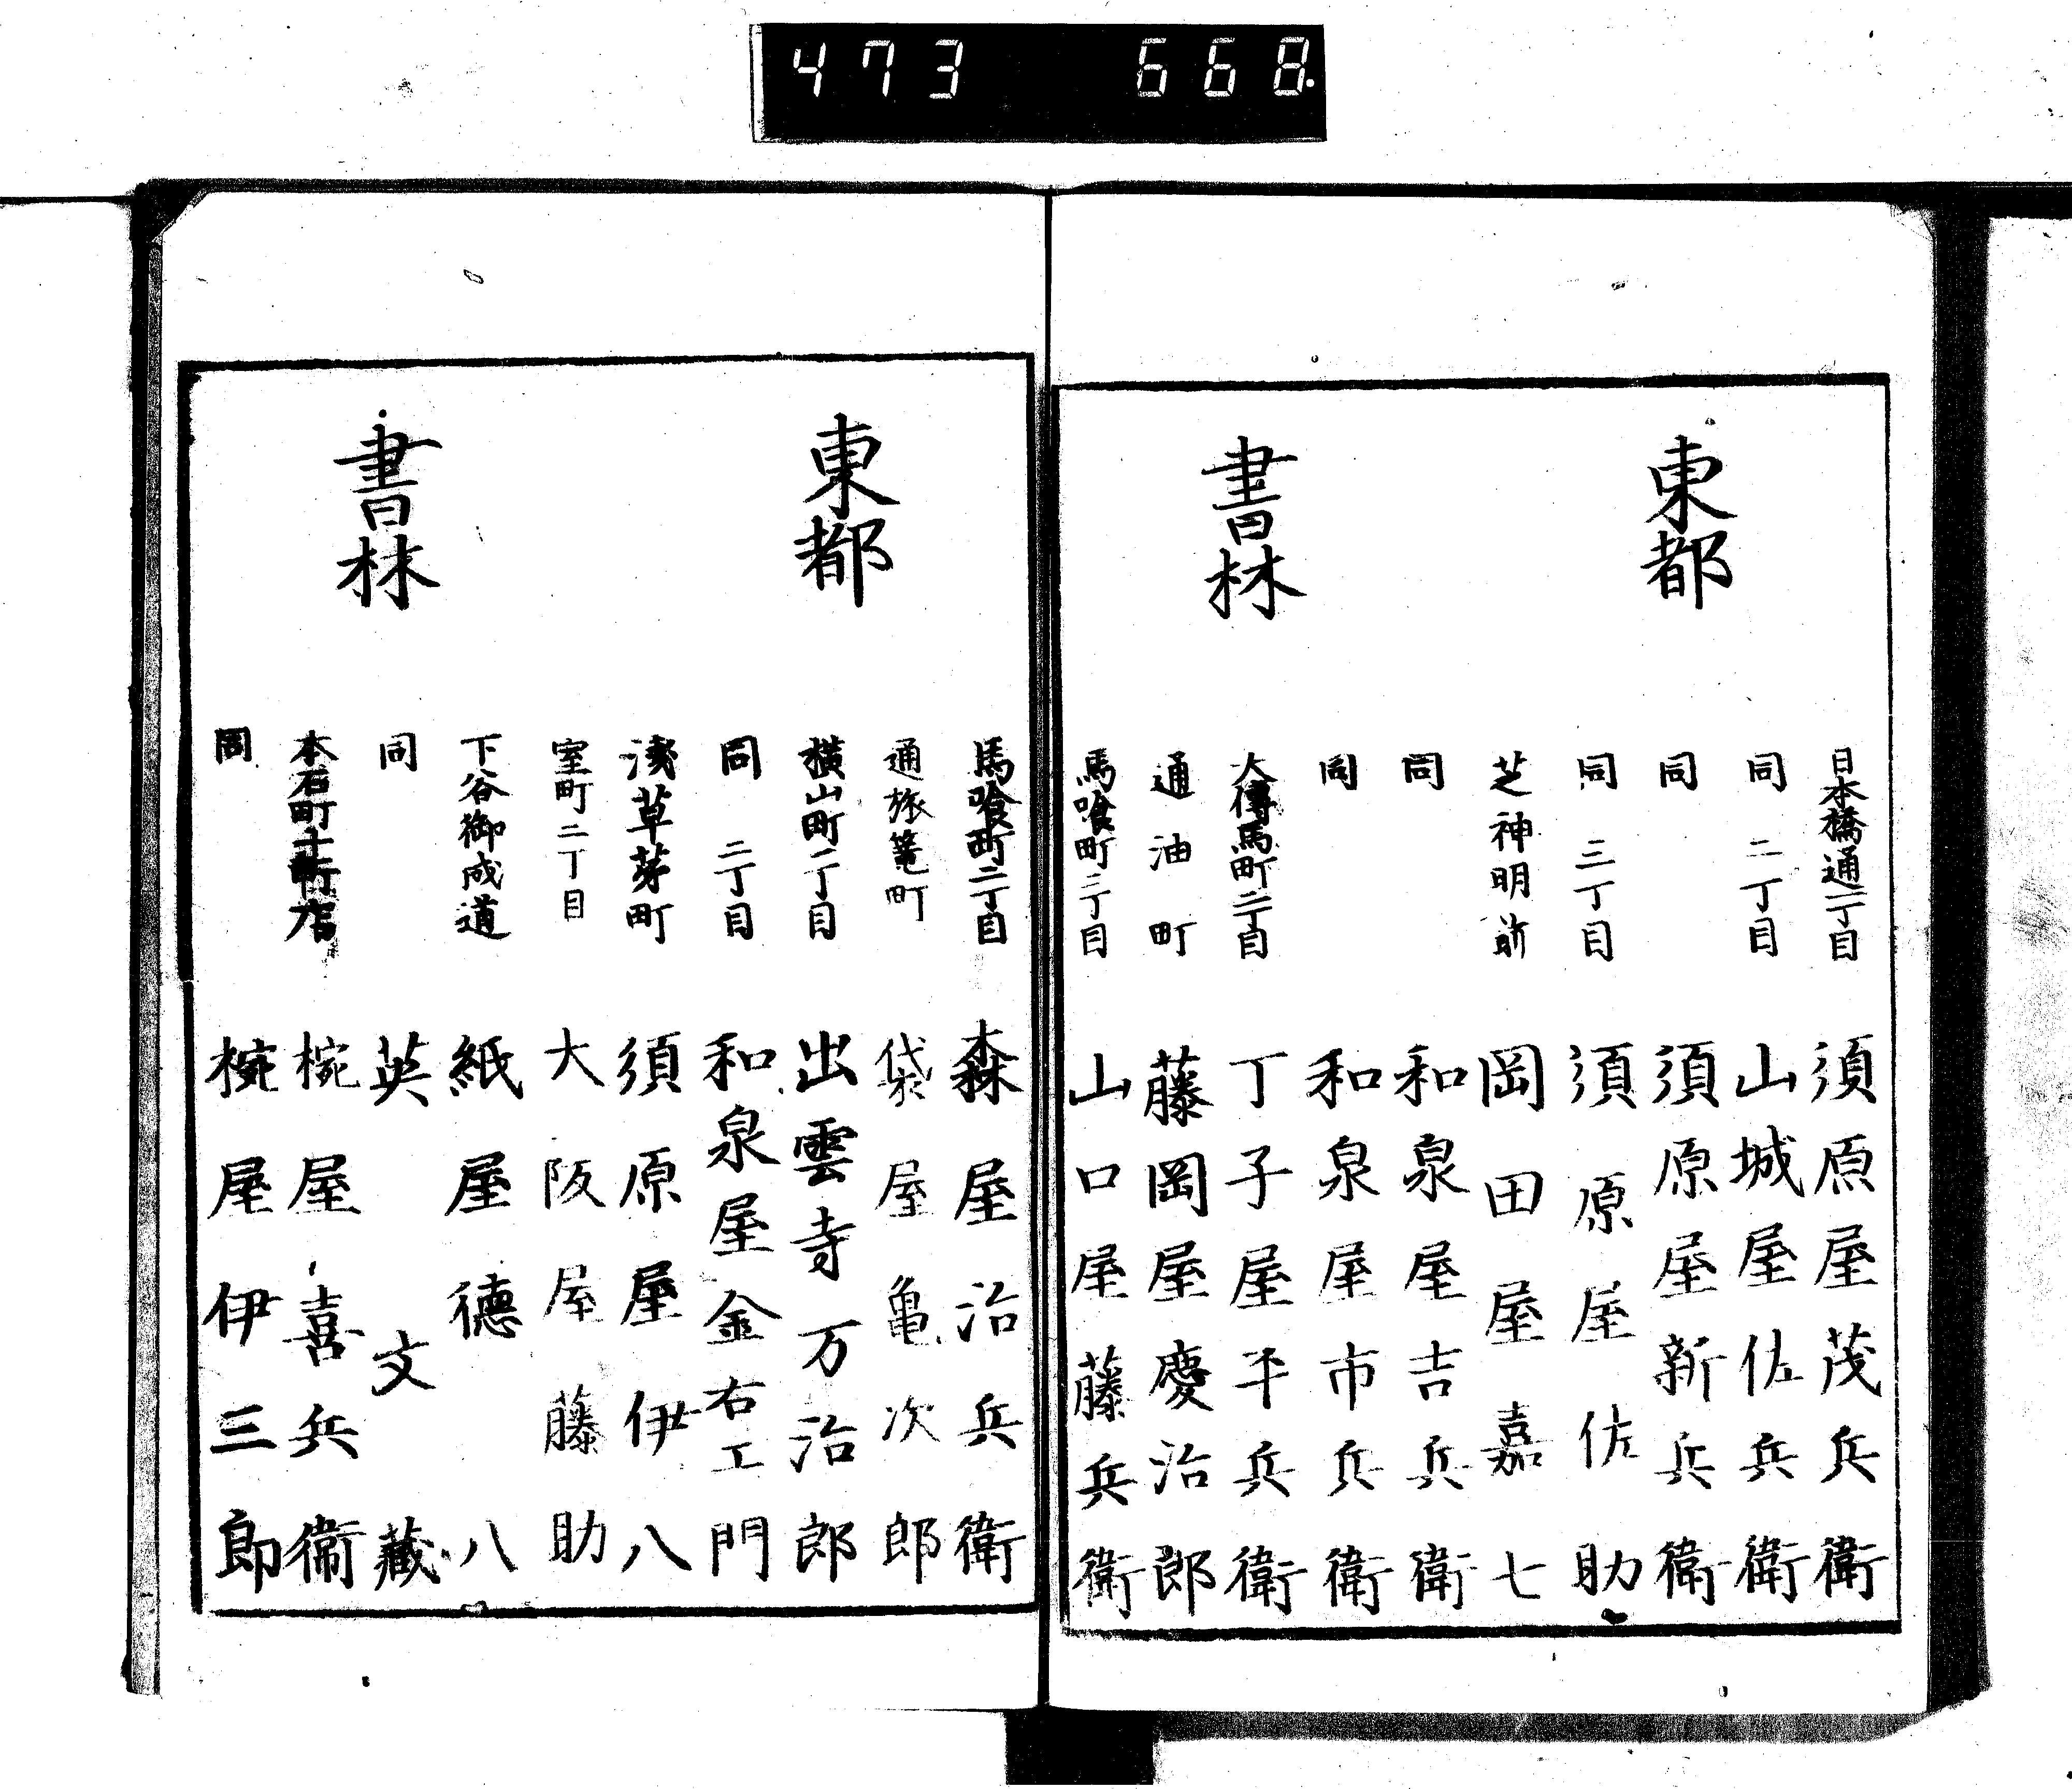 473 668.
東都
書林
日本橋通一丁目 須原屋茂兵衛
同 二丁目 山城屋佐兵衛
同 須原屋新兵衛
同 三丁目 須原屋佐助
芝神明前 岡田屋嘉七
同 和泉屋吉兵衛
同 和泉屋市兵衛
大傳馬町二丁目 丁子屋平兵衛
通油町 藤岡屋慶治郎
馬喰町二丁目 山口屋藤兵衛
東都
書林
馬喰町二丁目 森屋治兵衛
通旅篭町 袋屋亀次郎
横山町一丁目 出雲寺万治郎
同 二丁目 和泉屋金右エ門
淺草茅町 須原屋伊八
室町二丁目 大阪屋藤助
下谷御成道 紙屋徳八
同 英文藏
本石町十軒店 椀屋喜兵衛
同 椀屋伊三郎